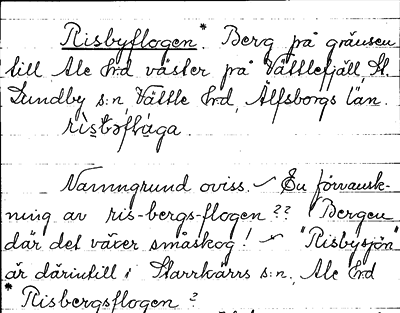 Risbyflogen*. Berg på gränsen
till Ale hd väster på Vättlefjäll, St.
Lundby s:n, Vättle hd, Älfsborgs län.
Namngrund oviss. – En förvansk-
ning av ris-bergs-flogen?? Bergen
där det växer småskog! – "Risbysjön"
är därintill i Starrkärrs s:n, Ale hd
* Risbergsflogen?